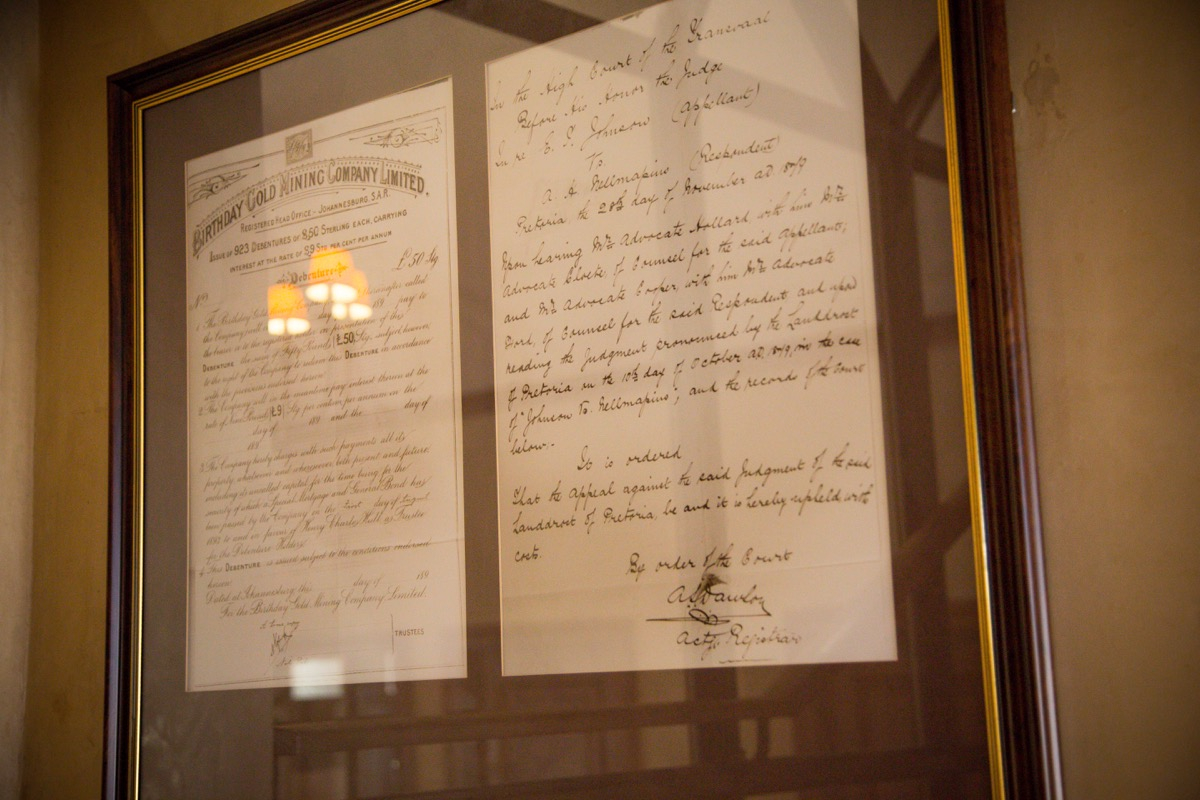 BIRTHDAY GOLD MINING COMPANY LIMITED.
REGISTERED HEAD OFFICE - JOHANNESBURG, S.A.R.
ISSUE OF 923 DEBENTURES OF £50 STERLING EACH, CARRYING
INTEREST AT THE RATE OF £9 STG PER CENT PER ANNUM
Debenture
£50 Stg
1. The Birthday Gold called
the Company will day of 189 pay to
the bearer or to the registered on presentation of this
DEBENTURE the sum of Fifty Pounds (£50) Stg, subject however
to the right of the Company to redeem this DEBENTURE in accordance
with the provisions endorsed hereon.
2. The Company will in the meantime pay interest thereon at the
rate of Nine Pounds (£9) Stg per centum per annum on the
day of 189 and the day of
189
3. The Company hereby charges with such payments all its
property whatsoever and wheresoever both present and future
including its uncalled capital for the time being for the
security of which a Special Mortgage and General Bond has
been passed by the Company on the day of August
189 to and in favor of Henry Charles Hull as Trustee
for the Debenture Holders
4. This DEBENTURE is issued subject to the conditions endorsed
hereon.
Dated at Johannesburg this day of 189
For the Birthday Gold Mining Company Limited.
TRUSTEES
In the High Court of the Transvaal
Before His Honor the Judge
In re Johnson (Appellant)
A H Nellmapius (Respondent)
Pretoria the 28th day of November AD 1879
Upon hearing Mr Advocate Hollard with him Mr
Advocate Cloete, of Counsel for the said Appellant;
and Mr Advocate Cooper, with him Mr Advocate
Ford, of Counsel for the said Respondent and upon
reading the Judgment pronounced by the Landdrost
of Pretoria on the 10th day of October AD 1879, in the case
of "Johnson vs. Nellmapius", and the records of the Court
below:-
It is ordered
That the Appeal against the said Judgment of the said
Landdrost of Pretoria, be and it is hereby upheld with
costs.
By order of the Court
Actg Registrar